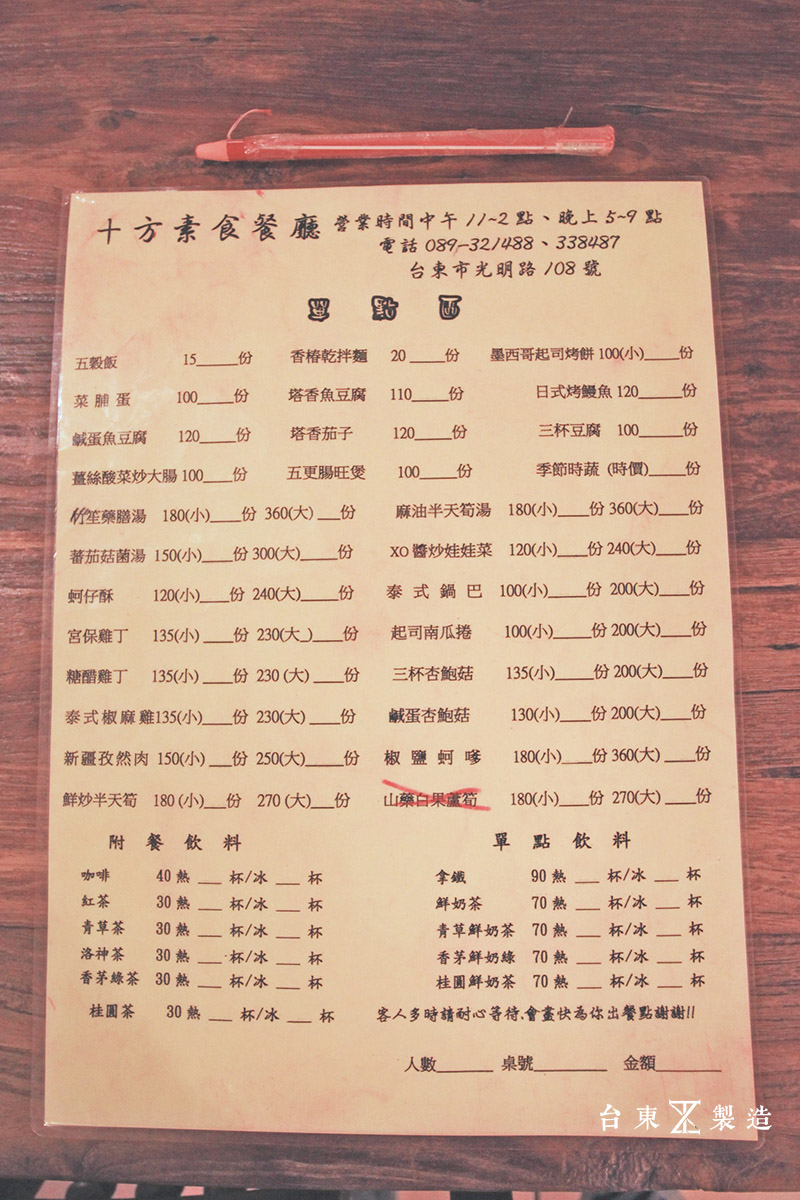 十方素食餐廳 營業時間中午 11~2 點、晚上 5~9 點
電話 089-321488、338487
台東市光明路 108 號
單點區
五穀飯 15_____份 香椿乾拌麵 20 _____份 墨西哥起司烤餅 100(小)_____份
菜脯蛋 100_____份 塔香魚豆腐 110_____份 日式烤鰻魚 120_____份
鹹蛋魚豆腐 120_____份 塔香茄子 120_____份 三杯豆腐 100_____份
薑絲酸菜炒大腸 100____份 五更腸旺煲 100_____份 季節時蔬 (時價)_____份
竹笙藥膳湯 180(小)____份 360(大) ___份 麻油半天筍湯 180(小)____份 360(大)____份
蕃茄菇菌湯 150(小)____份 300(大)_____份 XO 醬炒娃娃菜 120(小)____份 240(大)____份
蚵仔酥 120(小)____份 240(大)_____份 泰式鍋巴 100(小)_____份 200(大)____份
宮保雞丁 135(小) ____份 230(大_)____份 起司南瓜捲 100(小)_____份 200(大)____份
糖醋雞丁 135(小) ____份 230 (大) ____份 三杯杏鮑菇 135(小)_____份 200(大)____份
泰式椒麻雞 135(小)____份 230(大) ____份 鹹蛋杏鮑菇 130(小)____份 200(大)____份
新疆孜然肉 150(小) ___份 250(大)_____份 椒鹽蚵嗲 180(小)____份 360(大) ____份
鮮炒半天筍 180 (小)___份 270 (大)___份 山藥白果蘆筍 180(小)____份 270(大)____份
附餐飲料 單點飲料
咖啡 40 熱 ___ 杯/冰 ___ 杯 拿鐵 90 熱 ___ 杯/冰 ___ 杯
紅茶 30 熱 ___ 杯/冰 ___ 杯 鮮奶茶 70 熱 ___ 杯/冰 ___ 杯
青草茶 30 熱 ___ 杯/冰 ___ 杯 青草鮮奶茶 70 熱 ___ 杯/冰 ___ 杯
洛神茶 30 熱 ___ 杯/冰 ___ 杯 香茅鮮奶綠 70 熱 ___ 杯/冰 ___ 杯
香茅綠茶 30 熱 ___ 杯/冰 ___ 杯 桂圓鮮奶茶 70 熱 ___ 杯/冰 ___ 杯
桂圓茶 30 熱 ___ 杯/冰 ___ 杯 客人多時請耐心等待,會盡快為你出餐點謝謝!!
人數_______ 桌號_________ 金額________
台東製造